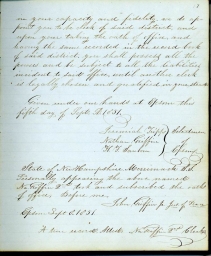 in your capacity and fidelity do ap
point you to be clerk of said district and
upon your taking the oath of office and
having the same recorded in the record book
of said district, you shall possess all the
powers and be subject to all the liabilities
incident to said office, until another clerk
is legally chosen and qualified in your stead
Given under our hands at Epsom this
fifth day of Sept A D 1851.
Jeremiah
Nathan Griffin
Selectmen
of
Epsom
State of New Hampshire Merrimack SS.
Personally appearing the above named
Griffin and subscribed the oath
of office Before me
John Griffin Jus. of Peace
Epsom Sept 5 1851
A true record Attest Griffin Clerk